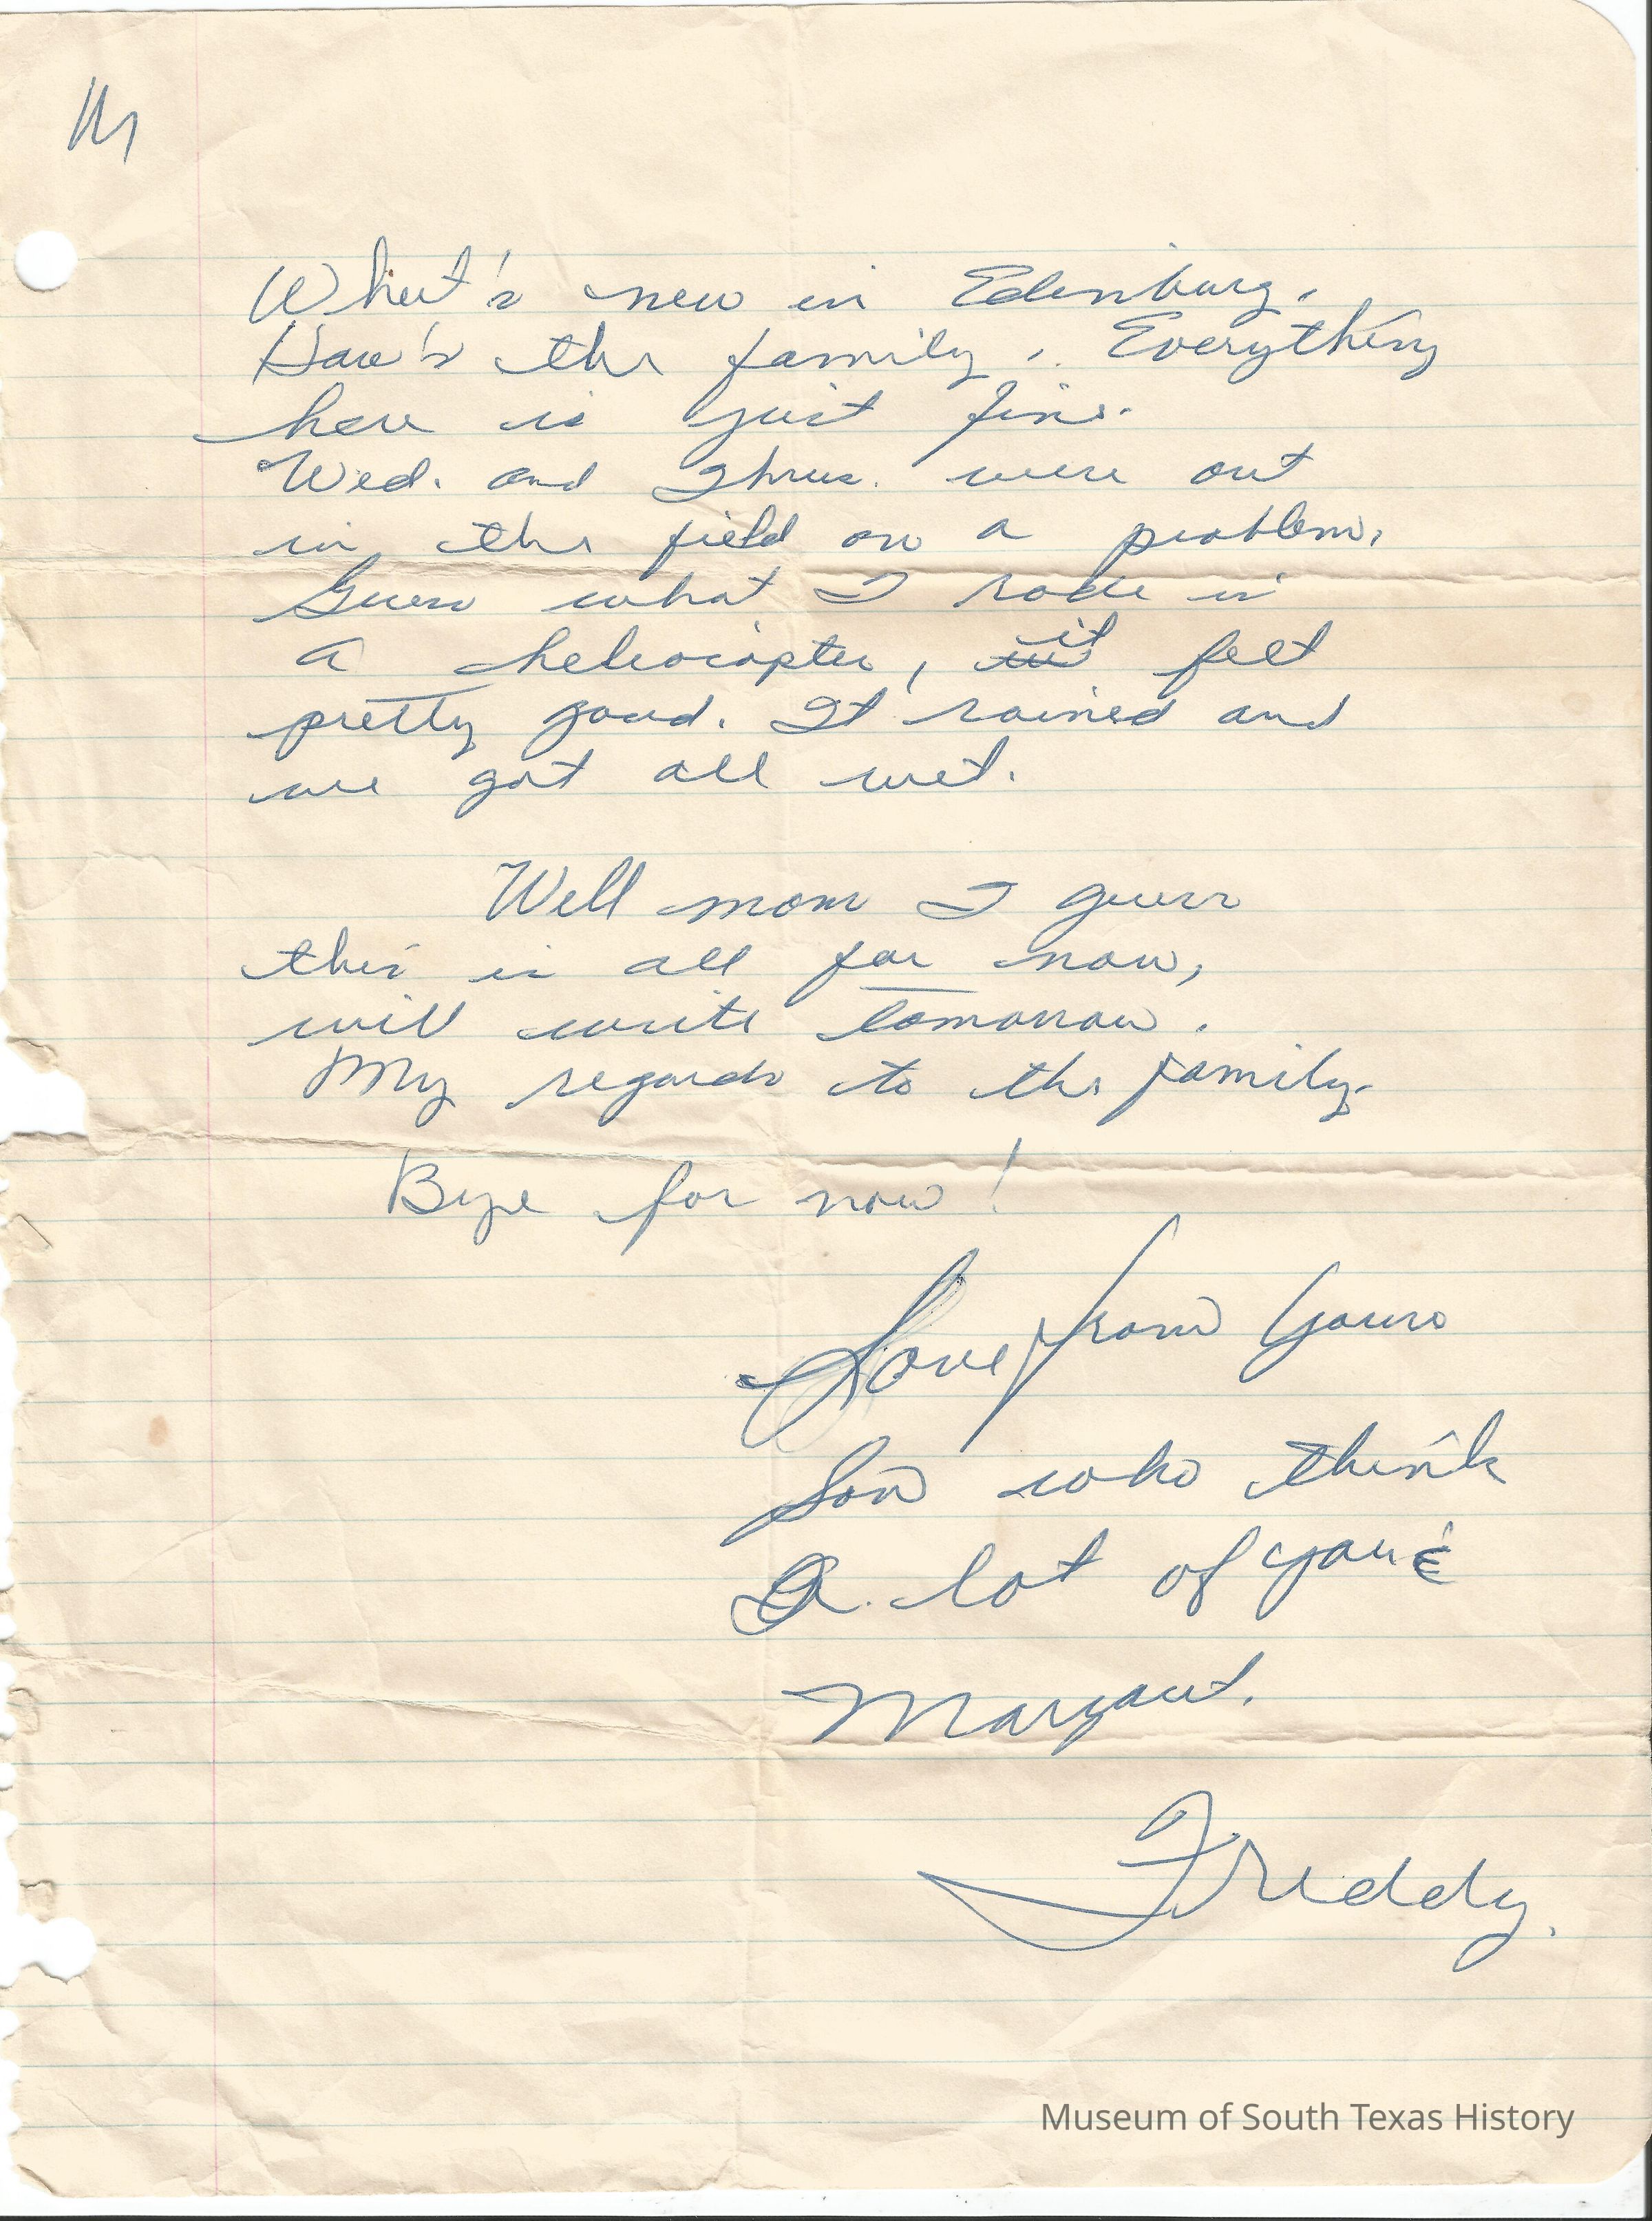 What's new in Edinburg.
How's the family. Everything
here is just fine.
Wed. and Thrus. were out
in the field on a problem,
Guess what I rode in
a heliocopter, it felt
pretty good. It rained and
we got all wet.
Well mom I guess
this is all for now,
will write tomorrow.
My regards to the family.
Bye for now!
Love from yours
Son who think
a lot of you &
Margaret.
Freddy.
Museum of South Texas History